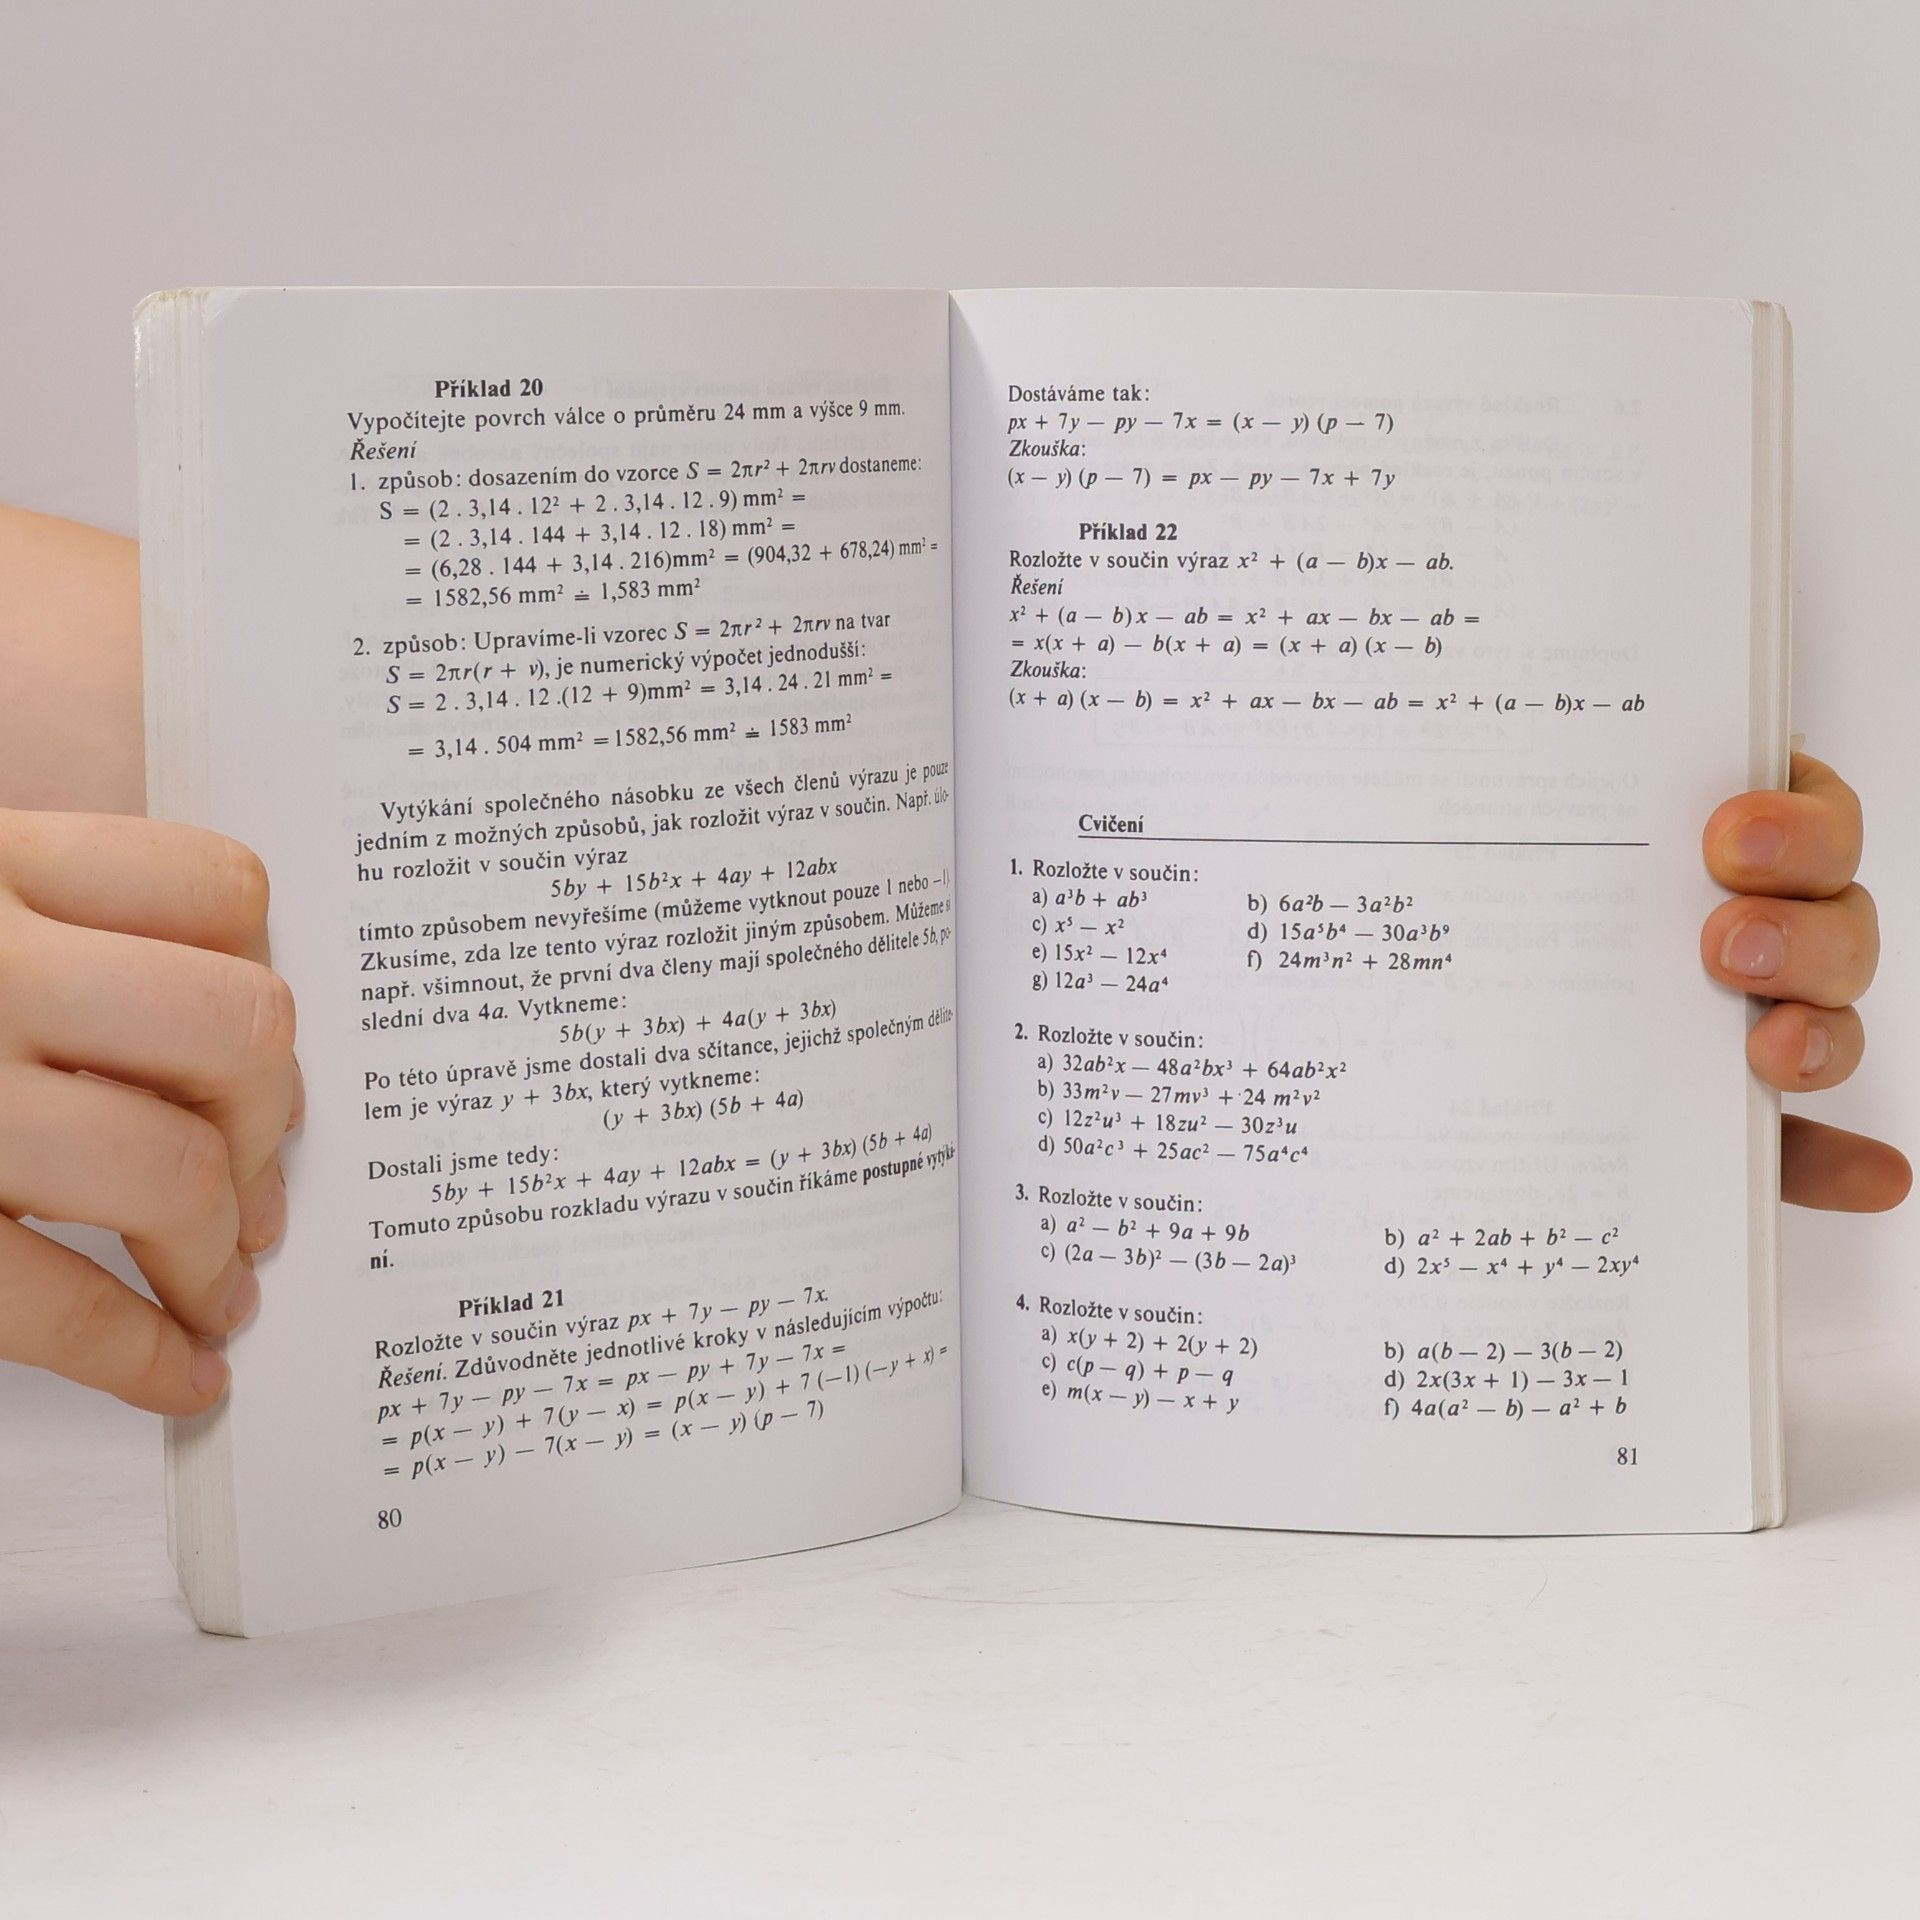 Příklad 20
Vypočítejte povrch válce o průměru 24 mm a výšce 9 mm.
Řešení
1. způsob: dosazením do vzorce S = 2πr² + 2πrv dostaneme:
S = (2 . 3,14 . 12² + 2 . 3,14 . 12 . 9) mm² =
= (2 . 3,14 . 144 + 3,14 . 12 . 18) mm² =
= (6,28 . 144 + 3,14 . 216)mm² = (904,32 + 678,24) mm² =
= 1582,56 mm² ≐ 1,583 mm²
2. způsob: Upravíme-li vzorec S = 2πr² + 2πrv na tvar
S = 2πr(r + v), je numerický výpočet jednodušší:
S = 2 . 3,14 . 12 .(12 + 9)mm² = 3,14 . 24 . 21 mm² =
= 3,14 . 504 mm² = 1582,56 mm² ≐ 1583 mm²
Vytýkání společného násobku ze všech členů výrazu je pouze
jedním z možných způsobů, jak rozložit výraz v součin. Např. úlo-
hu rozložit v součin výraz
5by + 15b²x + 4ay + 12abx
tímto způsobem nevyřešíme (můžeme vytknout pouze 1 nebo −1)
Zkusíme, zda lze tento výraz rozložit jiným způsobem. Můžeme si
např. všimnout, že první dva členy mají společného dělitele 5b, po-
slední dva 4a. Vytkneme:
5b(y + 3bx) + 4a(y + 3bx)
Po této úpravě jsme dostali dva sčítance, jejichž společným dělite-
lem je výraz y + 3bx, který vytkneme:
(y + 3bx) (5b + 4a)
Dostali jsme tedy:
5by + 15b²x + 4ay + 12abx = (y + 3bx) (5b + 4a)
Tomuto způsobu rozkladu výrazu v součin říkáme postupné vytýká-
ní.
Příklad 21
Rozložte v součin výraz px + 7y — py — 7x.
Řešení. Zdůvodněte jednotlivé kroky v následujícím výpočtu:
px + 7y — py — 7x = px — py + 7y — 7x =
= p(x — y) + 7(y — x) = p(x — y) + 7 (−1) (−y + x) =
= p(x — y) — 7(x — y) = (x — y) (p — 7)
80
Dostáváme tak:
px + 7y — py — 7x = (x — y) (p — 7)
Zkouška:
(x — y) (p — 7) = px — py — 7x + 7y
Příklad 22
Rozložte v součin výraz x² + (a — b)x — ab.
Řešení
x² + (a — b) x — ab = x² + ax — bx — ab =
= x(x + a) — b(x + a) = (x + a) (x — b)
Zkouška:
(x + a) (x — b) = x² + ax — bx — ab = x² + (a — b)x — ab
Cvičení
1. Rozložte v součin:
a) a³b + ab³ b) 6a²b — 3a²b²
c) x⁵ — x² d) 15a⁵b⁴ — 30a³b⁹
e) 15x² — 12x⁴ f) 24m³n² + 28mn⁴
g) 12a³ — 24a⁴
2. Rozložte v součin:
a) 32ab²x — 48a²bx³ + 64ab²x²
b) 33m²v — 27mv³ + 24 m²v²
c) 12z²u³ + 18zu² — 30z³u
d) 50a²c³ + 25ac² — 75a⁴c⁴
3. Rozložte v součin:
a) a² — b² + 9a + 9b b) a² + 2ab + b² — c²
c) (2a — 3b)² — (3b — 2a)³ d) 2x⁵ — x⁴ + y⁴ — 2xy⁴
4. Rozložte v součin:
a) x(y + 2) + 2(y + 2) b) a(b — 2) — 3(b — 2)
c) c(p — q) + p — q d) 2x(3x + 1) — 3x — 1
e) m(x — y) — x + y f) 4a(a² — b) — a² + b
81